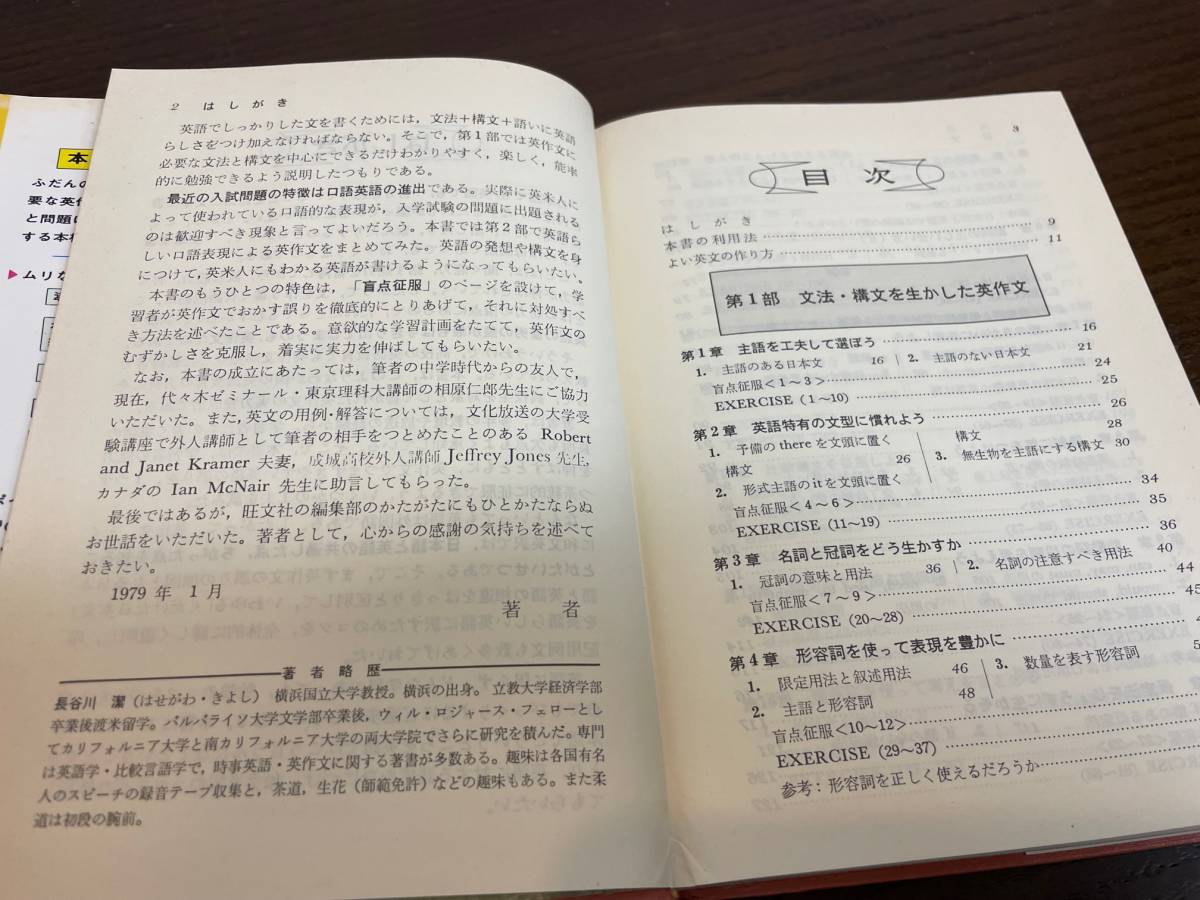 本
ふだんの
要な英作
と問題
する本
▶ムリな
2 はしがき
英語でしっかりした文を書くためには，文法＋構文＋語いに英語
らしさをつけ加えなければならない。そこで，第1部では英作文に
必要な文法と構文を中心にできるだけわかりやすく，楽しく，能率
的に勉強できるよう説明したつもりである。
最近の入試問題の特徴は口語英語の進出である。実際に英米人に
よって使われている口語的な表現が，入学試験の問題に出題される
のは歓迎すべき現象と言ってよいだろう。本書では第2部で英語ら
しい口語表現による英作文をまとめてみた。英語の発想や構文を身
につけて，英米人にもわかる英語が書けるようになってもらいたい。
本書のもうひとつの特色は，「盲点征服」のページを設けて，学
習者が英作文でおかす誤りを徹底的にとりあげて，それに対処すべ
き方法を述べたことである。意欲的な学習計画をたてて，英作文の
むずかしさを克服し，着実に実力を伸ばしてもらいたい。
なお，本書の成立にあたっては，筆者の中学時代からの友人で，
現在，代々木ゼミナール・東京理科大講師の相原仁郎先生にご協力
いただいた。また，英文の用例・解答については，文化放送の大学受
験講座で外人講師として筆者の相手をつとめたことのある Robert
and Janet Kramer 夫妻，成城高校外人講師 Jeffrey Jones 先生，
カナダの Ian McNair 先生に助言してもらった。
最後ではあるが，旺文社の編集部のかたがたにもひとかたならぬ
お世話をいただいた。著者として，心からの感謝の気持ちを述べて
おきたい。
1979 年 1 月
著 者
著者略歴
長谷川 潔（はせがわ・きよし） 横浜国立大学教授。横浜の出身。立教大学経済学部
卒業後渡米留学。バルパライソ大学文学部卒業後，ウィル・ロジャース・フェローとし
てカリフォルニア大学と南カリフォルニア大学の両大学院でさらに研究を積んだ。専門
は英語学・比較言語学で，時事英語・英作文に関する著書が多数ある。趣味は各国有名
人のスピーチの録音テープ収集と，茶道，生花（師範免許）などの趣味もある。また柔
道は初段の腕前。
3
目次
はしがき
本書の利用法 9
よい英文の作り方 11
第1部 文法・構文を生かした英作文
第1章 主語を工夫して選ぼう 16
1. 主語のある日本文 16 2. 主語のない日本文 21
盲点征服＜1～3＞ 24
EXERCISE (1～10) 25
第2章 英語特有の文型に慣れよう 26
1. 予備の there を文頭に置く 構文 28
構文 26 3. 無生物を主語にする構文 30
2. 形式主語の it を文頭に置く
盲点征服＜4～6＞ 34
EXERCISE (11～19) 35
第3章 名詞と冠詞をどう生かすか 36
1. 冠詞の意味と用法 36 2. 名詞の注意すべき用法 40
盲点征服＜7～9＞ 44
EXERCISE (20～28) 45
第4章 形容詞を使って表現を豊かに
1. 限定用法と叙述用法 46 3. 数量を表す形容詞
2. 主語と形容詞 48
盲点征服＜10～12＞
EXERCISE (29～37)
参考：形容詞を正しく使えるだろうか